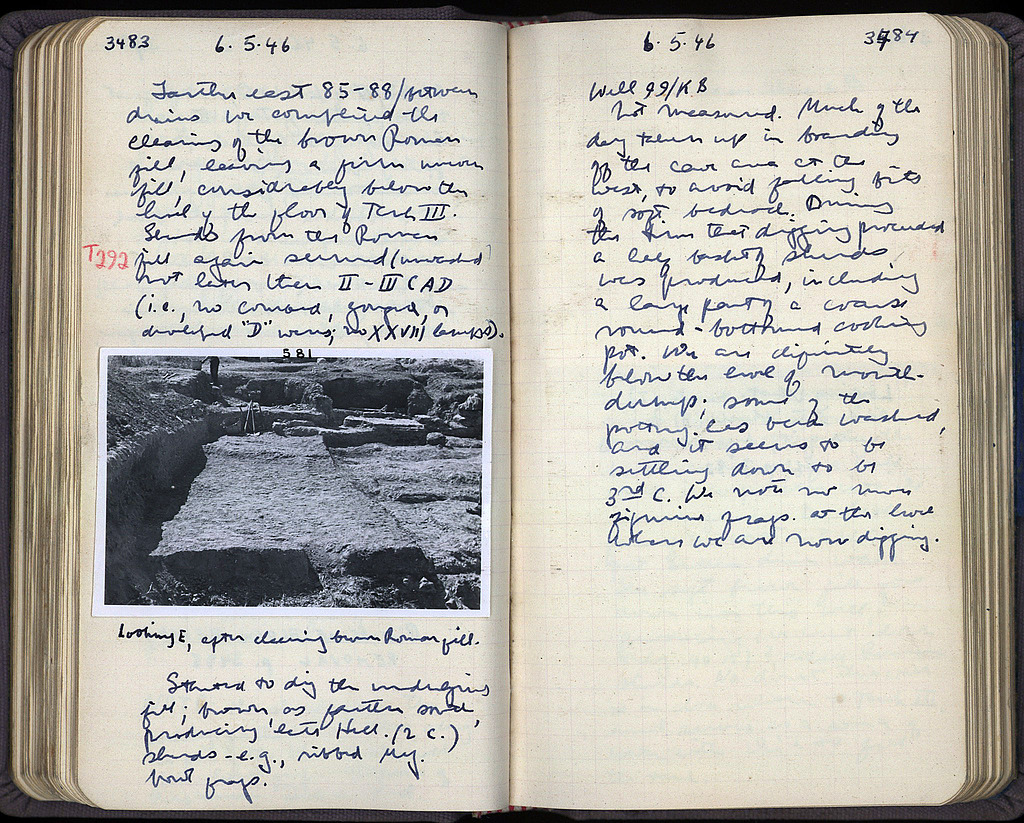 3483 6. 5. 46
Farther east 85-88/ between
drains we completed the
clearing of the brown Roman
fill, leaving a firm
fill, considerably below the
level of the floor of Terr III.
Sherds from the Roman
T292
fill again seemed (unwashed)
not later than II - III C AD
(i.e., no combed, gouged, or
developed "D" wares; no XXVIII lamps).
581
Looking E, after clearing brown Roman fill.
Started to dig the underlying
fill; brown, as farther south,
producing late Hell. (2 C.)
sherds - e.g., ribbed Meg.
bowl frags.
6. 5. 46 3484
Well 99/KB
Not measured. Much of the
day taken up in boarding
off the cave area at the
west, to avoid falling bits
of soft bedrock. During
the time that digging proceeded
a basket of sherds
was produced, including
a large part of a coarse
round-bottomed cooking
pot. We are definitely
below the level of
dump; some of the
pottery has been washed,
and it seems to be
settling down to be
3rd C. We note no more
frags. at the level
where we are now digging.